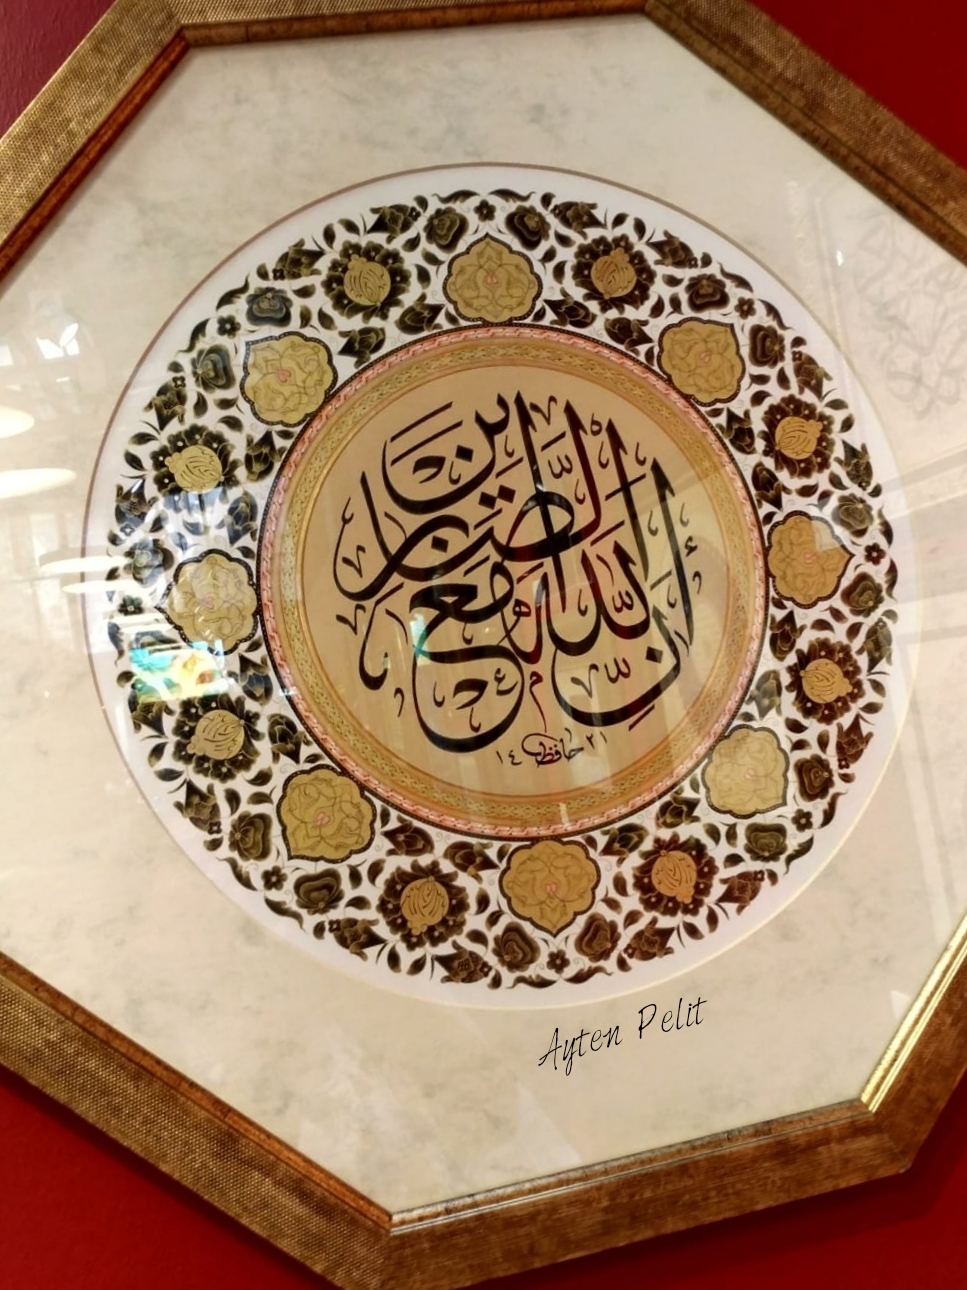 إن الله مع الصابرين
حافظ ١٤٢١
Ayten Pelit